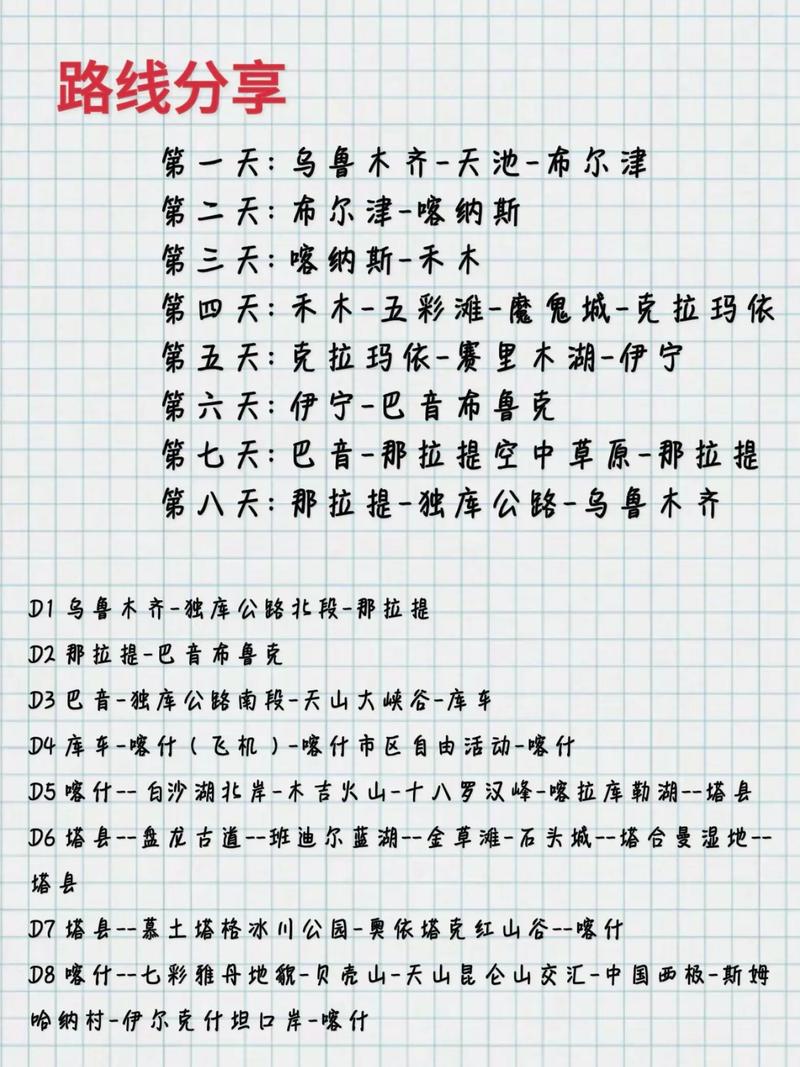 路线分享
第一天:乌鲁木齐-天池-布尔津
第二天:布尔津-喀纳斯
第三天:喀纳斯-禾木
第四天:禾木-五彩滩-魔鬼城-克拉玛依
第五天:克拉玛依-赛里木湖-伊宁
第六天:伊宁-巴音布鲁克
第七天:巴音-那拉提空中草原-那拉提
第八天:那拉提-独库公路-乌鲁木齐
D1 乌鲁木齐-独库公路北段-那拉提
D2 那拉提-巴音布鲁克
D3 巴音-独库公路南段-天山大峡谷-库车
D4 库车-喀什(飞机)-喀什市区自由活动-喀什
D5 喀什--白沙湖北岸-木吉火山-十八罗汉峰-喀拉库勒湖--塔县
D6 塔县--盘龙古道--班迪尔蓝湖--金草滩-石头城--塔合曼湿地--
塔县
D7 塔县--慕士塔格冰川公园-奥依塔克红山谷--喀什
D8 喀什--七彩雅丹地貌-贝壳山-天山昆仑山交汇-中国西极-斯姆
哈纳村-伊尔克什坦口岸-喀什